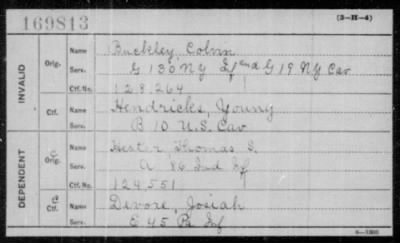 169813
(3-H-4)
INVALID
Orig.
Name Buckley, Colvin
Serv. G 130 NY Inf and G 19 NY Cav
Ctf. No. 128,264
Ctf.
Name Hendricks, Young
Serv. B 10 U.S. Cav
DEPENDENT
Orig.
Name Thomas S.
Serv. A 86 Ind Inf
Ctf. No. 124,551
Ctf.
Name Devore, Josiah
Serv. E 45 Pa Inf